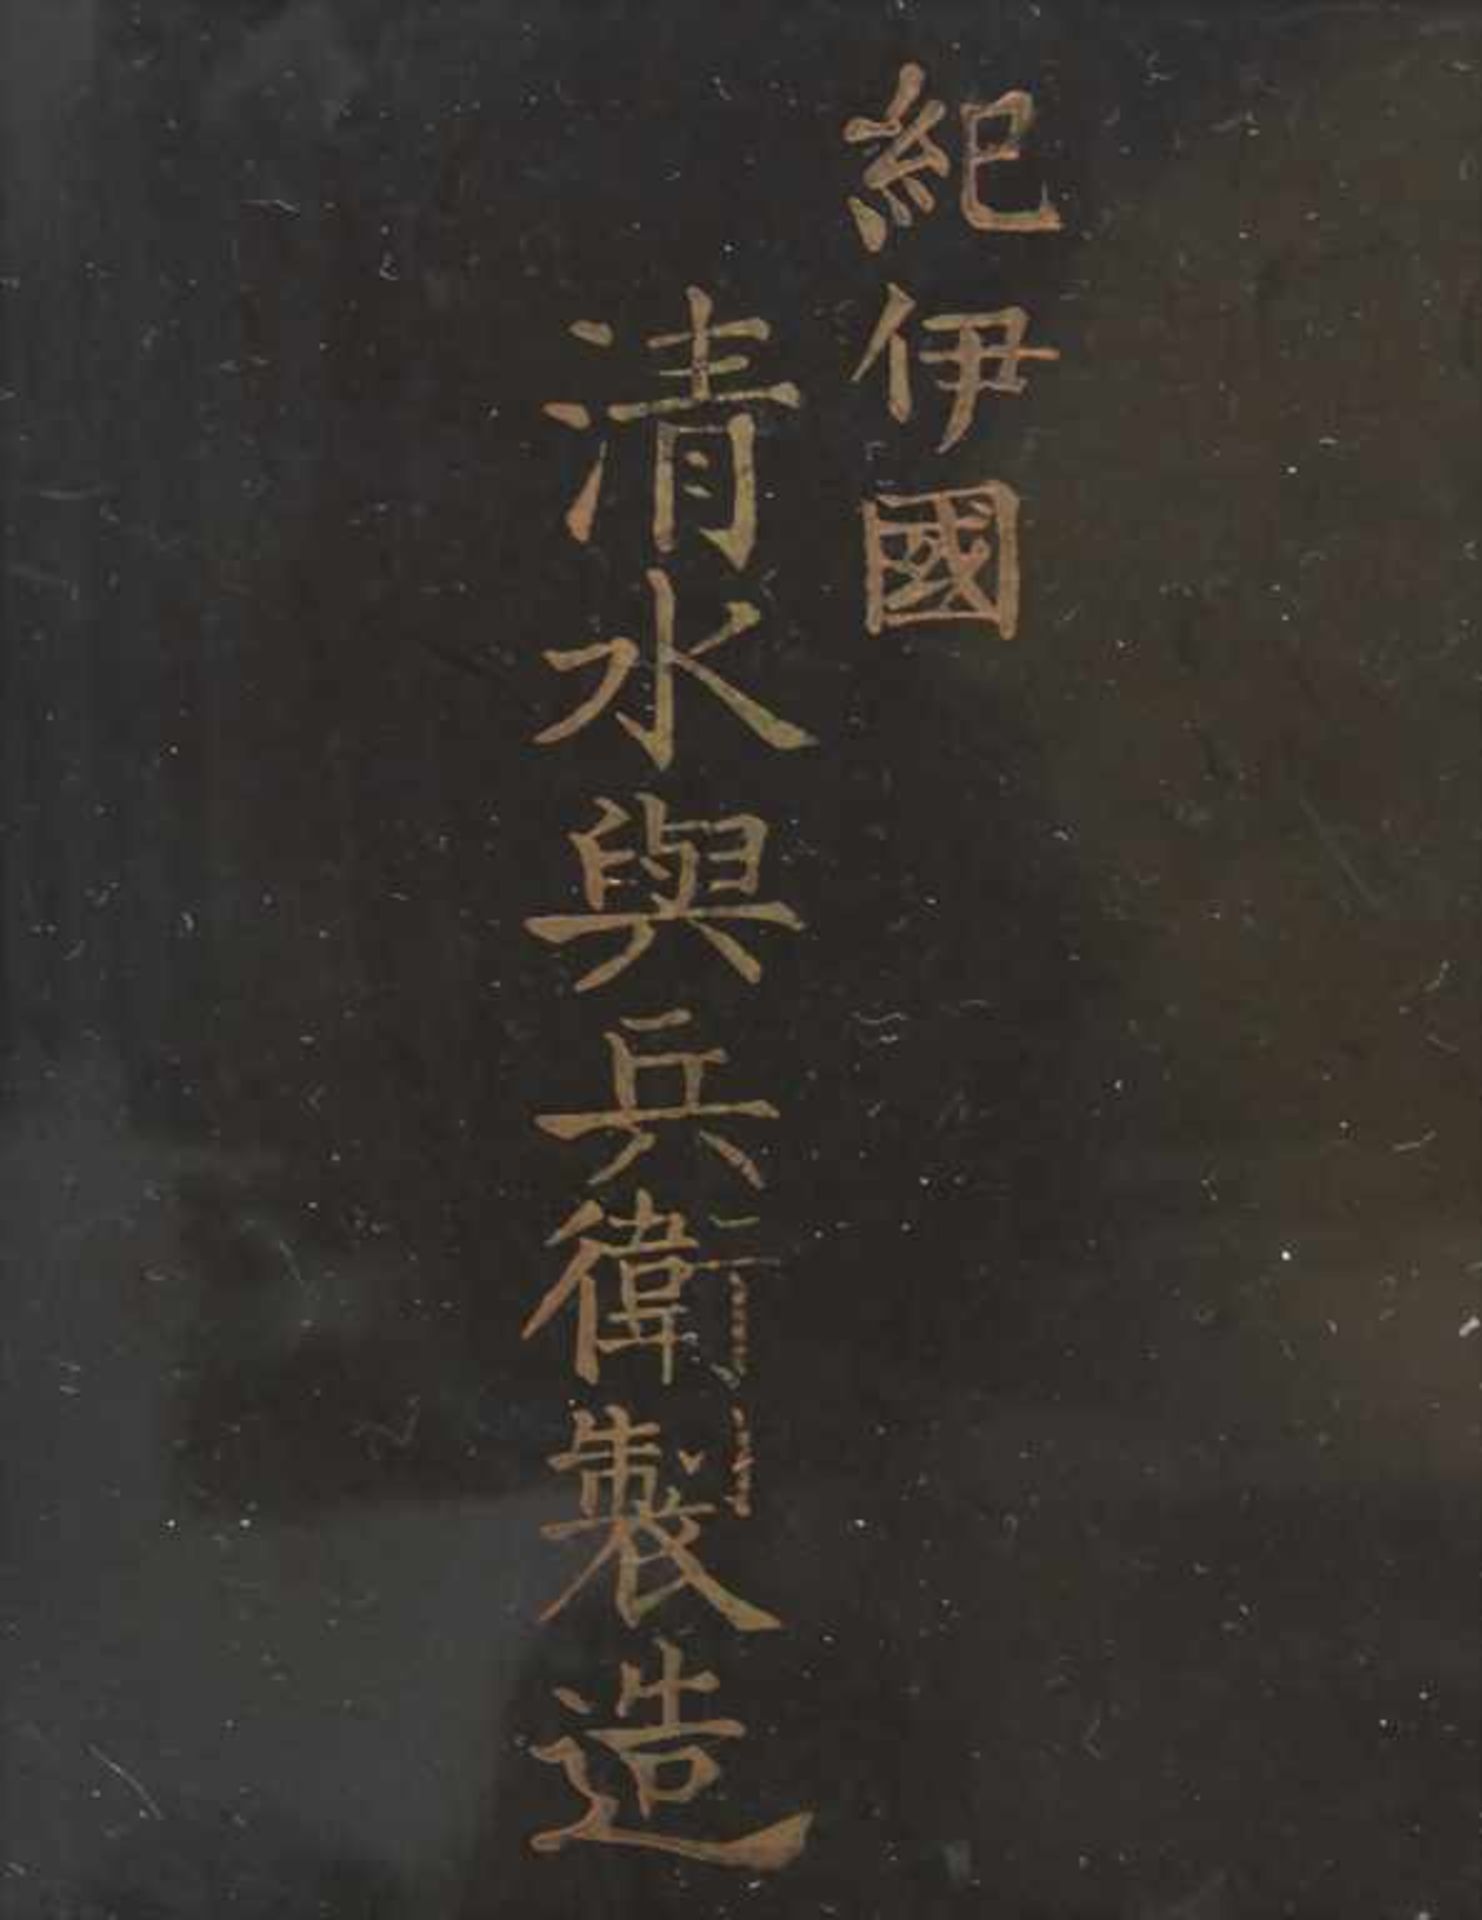 紀伊國
清水與兵衛製造